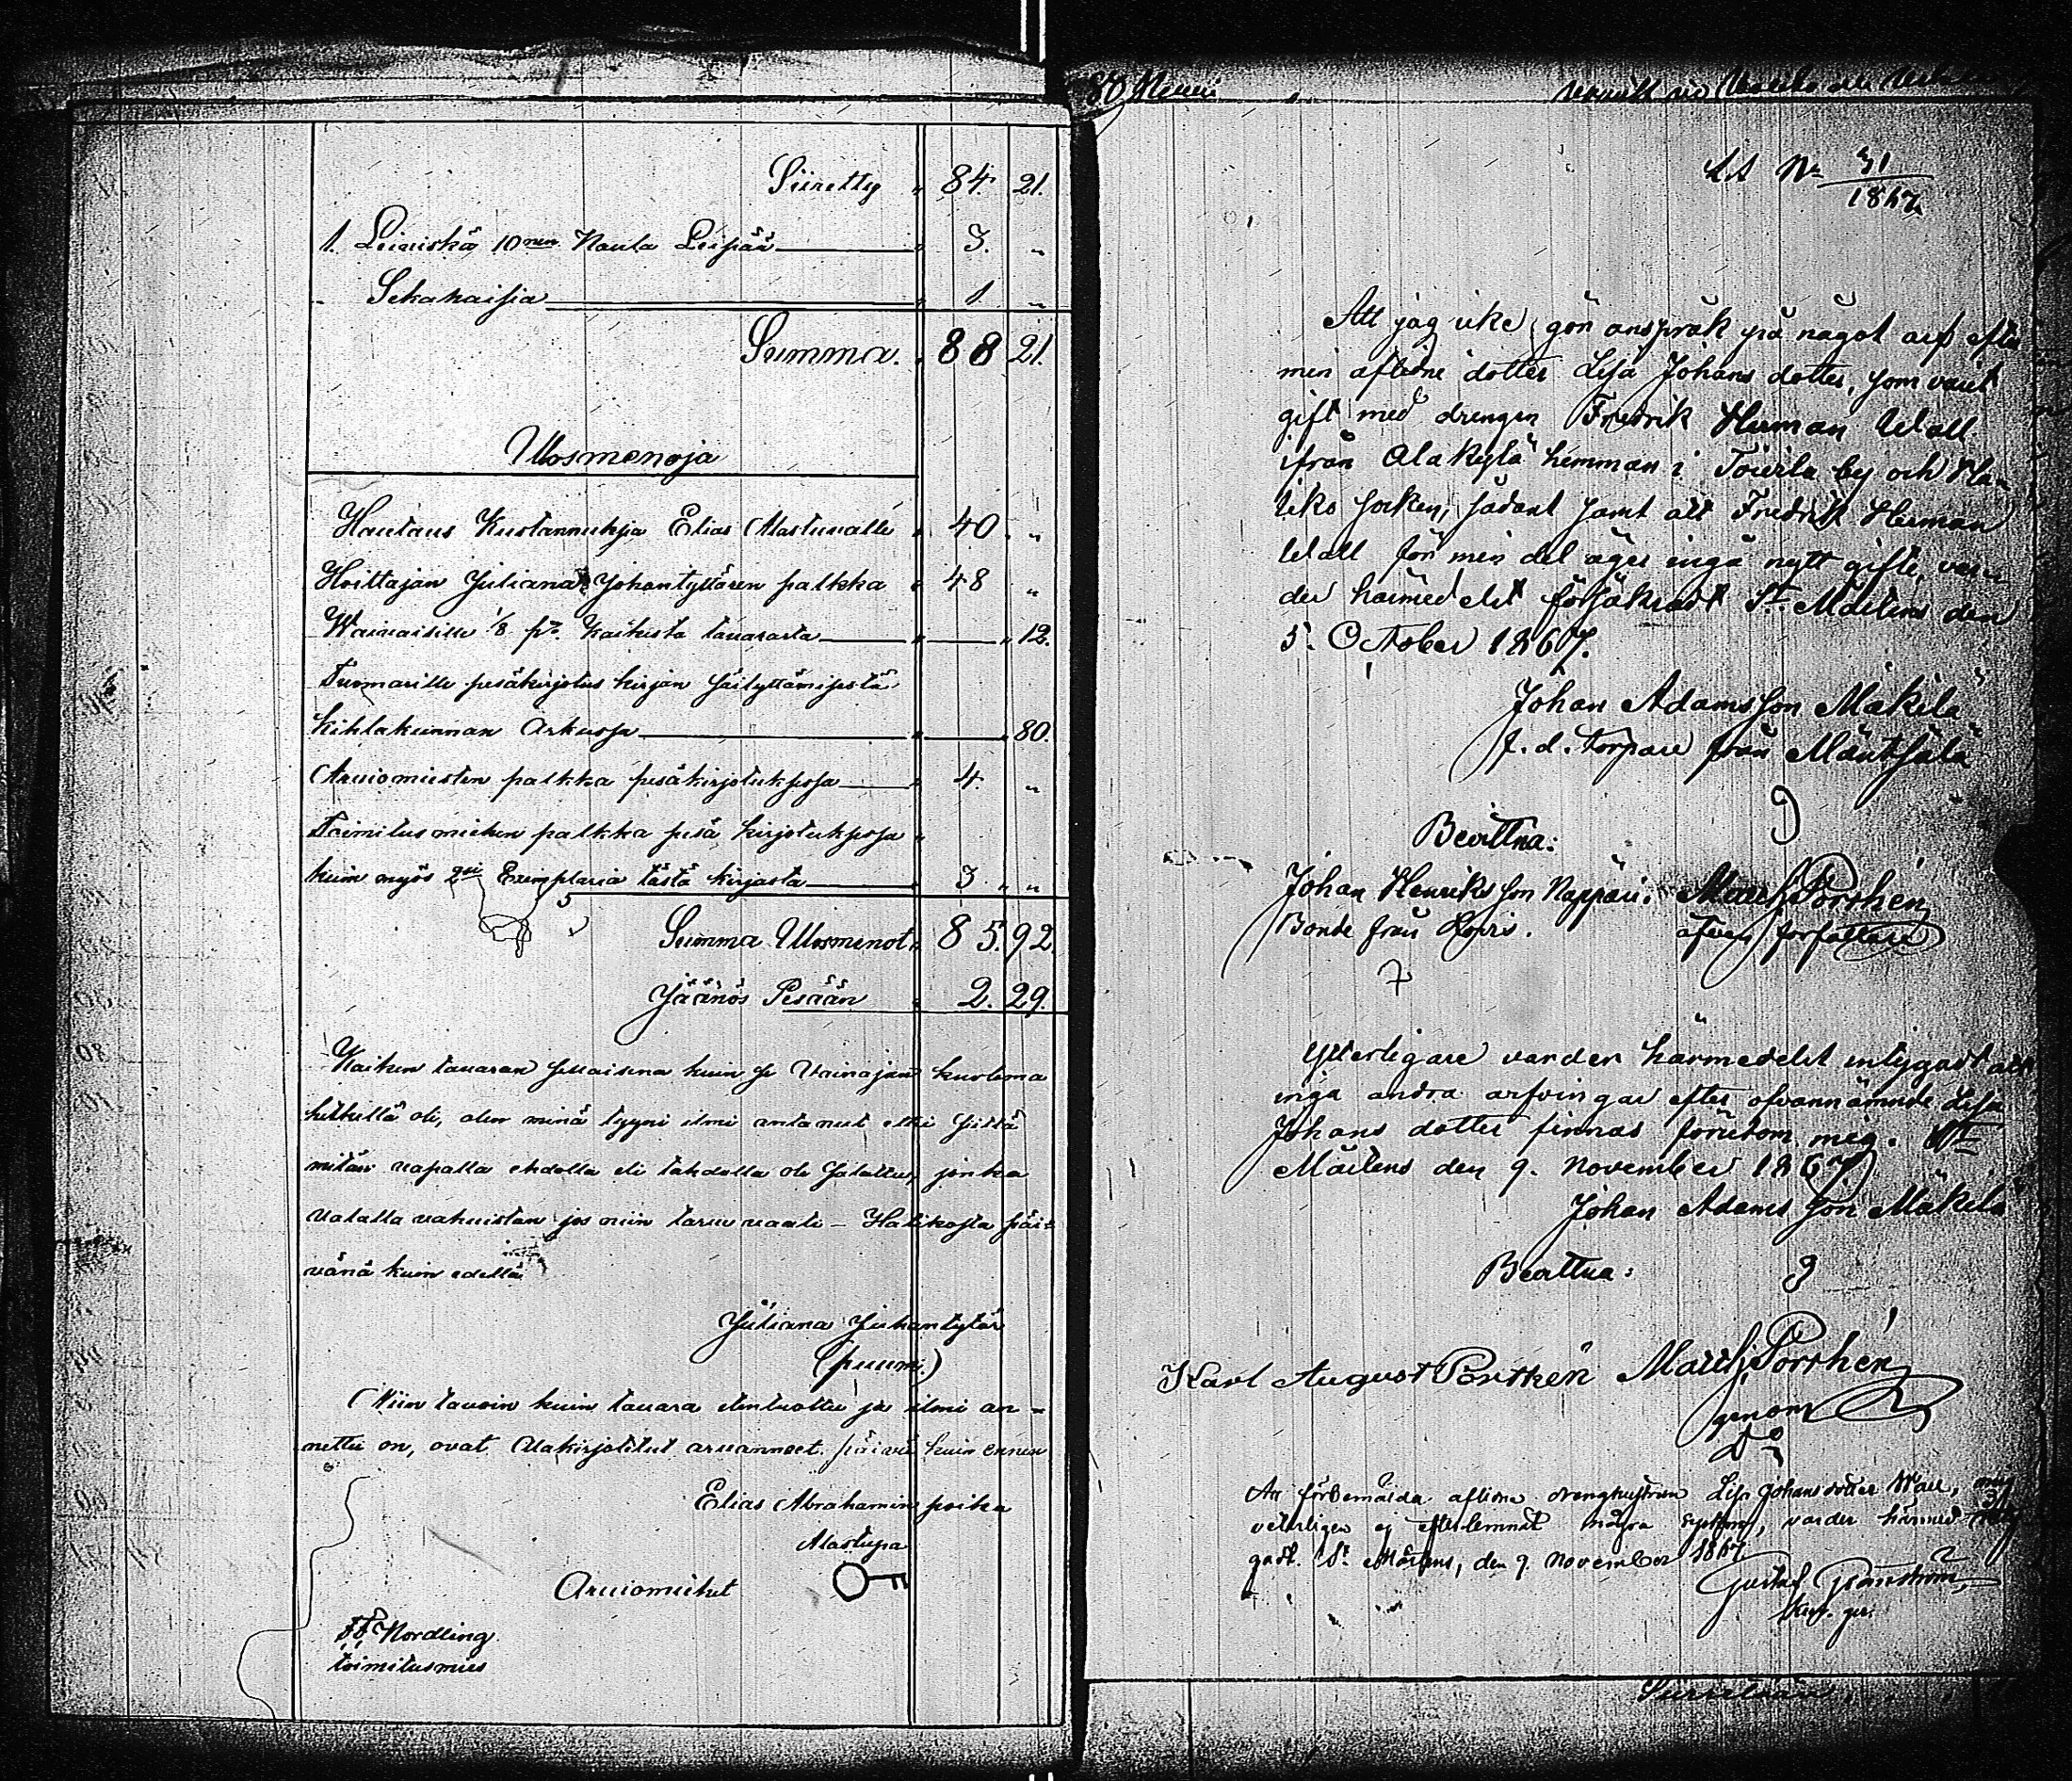 Siiretty " 84. 21.
1. Leiviskä 10nen Naula Leipää " 3. "
" Sekakaisia " 1. "
Summa. " 88 21.
Ulosmenoja
Hautaus Kustannuksia Elias Alastuvalle " 40. "
Hoittajan Juliana Johantyttären palkka " 48 "
Waivaisille 1/8 pro. Kaikista tavarasta " 12.
Tuomarille pesäkirjotus kirjan säilyttämisestä
Kihlakunnan Arkussa " 80.
Arviomiesten palkka pesäkirjotuksessa " 4. "
Toimitusmiehen palkka pesä kirjotuksessa "
kuin myös 2si Exemplaria tästä kirjasta " 3 " "
Summa Ulosmenot " 85. 92.
Jäänös Pesään " 2. 29.
Kaiken tavaran semmaisena kuin se Vainajan kuolema
hetkellä oli, olen minä tyyni ilmi antanut ettei siittä
mitän vapalla ehdolla eli tahdolla ole salattu, jonka
valalla vahvistan jos niin tarve vaatii – Halikosta päi=
vänä kuin edellä
Juliana Juhantytär
(puum.)
Niin tavoin kuin tavara edestuottu ja ilmi an=
nettu on, ovat Allakirjotetut arvanneet. päivä kuin ennen
Elias Abrahamin poika
Alastupa
Arviomiehet
F F Nordling
toimitusmies
80 Penni
Lit Nr 31/1867
Att jag icke gör anspråk på något arf efter
min aflidne dotter Lisa Johans dotter, som varit
gift med drengen Fredrik Herman Wall
ifrån Alakylä hemman i Toierla by och Ha-
liko socken, sådant samt att Fredrik Herman
Wall för min del äger ingå nytt gifte, var-
der härmedelst försäkradt St. Mårtens den
5. October 1867.
Johan Adamsson Mäkilä
f. d. torpare från Mäntsälä
Bevittna:
Johan Henriksson Nappari. Matts Porthén
Bonde från Korvis. äfven författare
Ytterligare varder härmedelst intygadt att
inga andra arfvingar efter ofvannämnde Lisa
Johans dotter finnas förutom mig. St
Mårtens den 9. November 1867
Johan Adams son Mäkilä
Bevittna:
Karl August Porthén Matts Porthén
genom
Do
Att förbemälda aflidna drenghustrun Lisa Johansdotter Wall, mig
veterligen ej efterlemnat några syskon, varder härmed inty
gadt. St Mårtens, den 9. November 1867
Gustaf Granström,